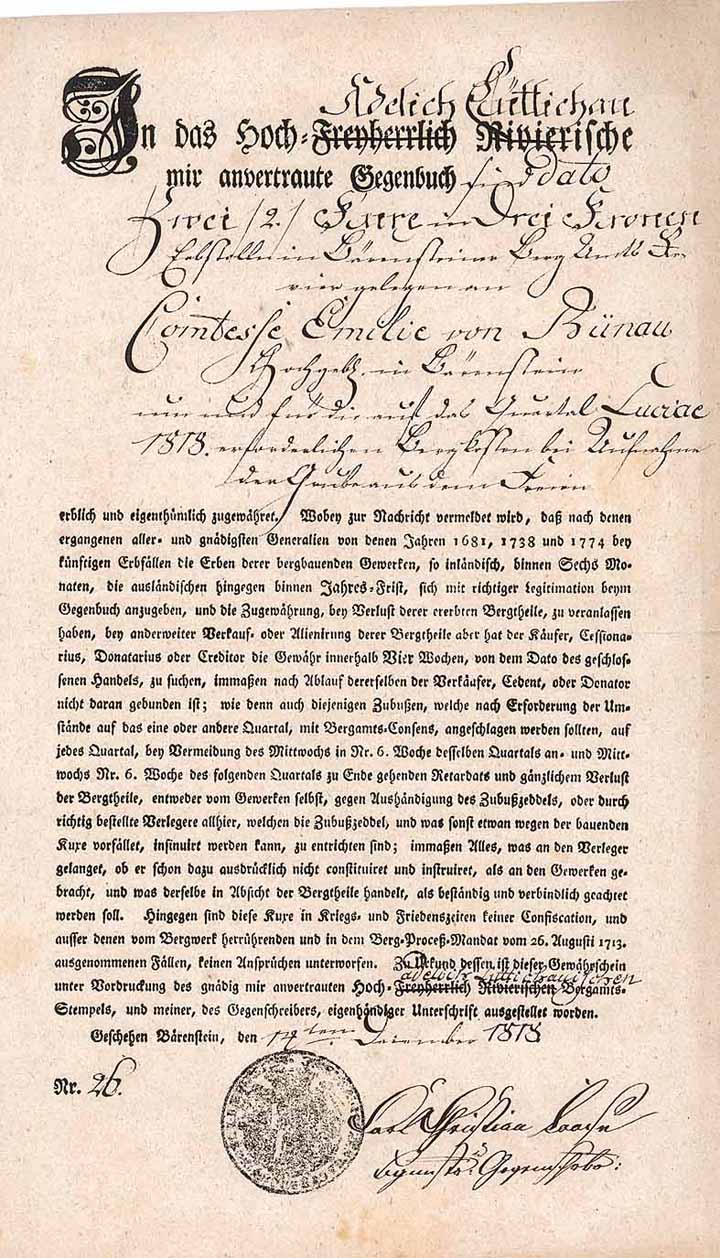 Adelich Lüttichau
In das Hoch-Freyherrlich Rivierische
mir anvertraute Gegenbuch sind dato
Zwei /2./ Kuxe in Drei Kronen
Erbstolln in Bärensteiner Berg Amts Re-
vier gelegen an
Comtesse Emilie von Bünau
Hochgeb. in Bärenstein
um und für die auf das Quartal Luciae
1818. erforderlichen Bergkosten bei Aufnahme
der Grube aus dem Freien
erblich und eigenthümlich zugewähret. Wobey zur Nachricht vermeldet wird, daß nach denen
ergangenen aller- und gnädigsten Generalien von denen Jahren 1681, 1738 und 1774 bey
künftigen Erbfällen die Erben derer bergbauenden Gewerken, so inländisch, binnen Sechs Mo-
naten, die ausländischen hingegen binnen Jahres-Frist, sich mit richtiger Legitimation beym
Gegenbuch anzugeben, und die Zugewährung, bey Verlust derer ererbten Bergtheile, zu veranlassen
haben, bey anderweiter Verkauf- oder Alienirung derer Bergtheile aber hat der Käufer, Cessiona-
rius, Donatarius oder Creditor die Gewähr innerhalb Vier Wochen, von dem Dato des geschlos-
senen Handels, zu suchen, immaßen nach Ablauf dererselben der Verkäufer, Cedent, oder Donator
nicht daran gebunden ist; wie denn auch diejenigen Zubußen, welche nach Erforderung der Um-
stände auf das eine oder andere Quartal, mit Bergamts-Consens, angeschlagen werden sollten, auf
jedes Quartal, bey Vermeidung des Mittwochs in Nr. 6. Woche desselben Quartals an- und Mitt-
wochs Nr. 6. Woche des folgenden Quartals zu Ende gehenden Retardats und gänzlichem Verlust
der Bergtheile, entweder vom Gewerken selbst, gegen Aushändigung des Zubußzeddels, oder durch
richtig bestellte Verlegere allhier, welchen die Zubußzeddel, und was sonst etwan wegen der bauenden
Kuxe vorfället, insinuirt werden kann, zu entrichten sind; immaßen Alles, was an den Verleger
gelanget, ob er schon dazu ausdrücklich nicht constituiret und instruiret, als an den Gewerken ge-
bracht, und was derselbe in Absicht der Bergtheile handelt, als beständig und verbindlich geachtet
werden soll. Hingegen sind diese Kuxe in Kriegs- und Friedenszeiten keiner Confiscation, und
ausser denen vom Bergwerk herrührenden und in dem Berg-Proceß-Mandat vom 26. Augusti 1713.
ausgenommenen Fällen, keinen Ansprüchen unterworfen. Zu Urkund dessen ist dieser Gewährschein
adelich Lüttichauischen
unter Vordruckung des gnädig mir anvertrauten Hoch-Freyherrlich Rivierischen Bergamts-
Stempels, und meiner, des Gegenschreibers, eigenhändiger Unterschrift ausgestellet worden.
Geschehen Bärenstein, den 14ten Dezember 1818
Nr. 26.
Carl Christian